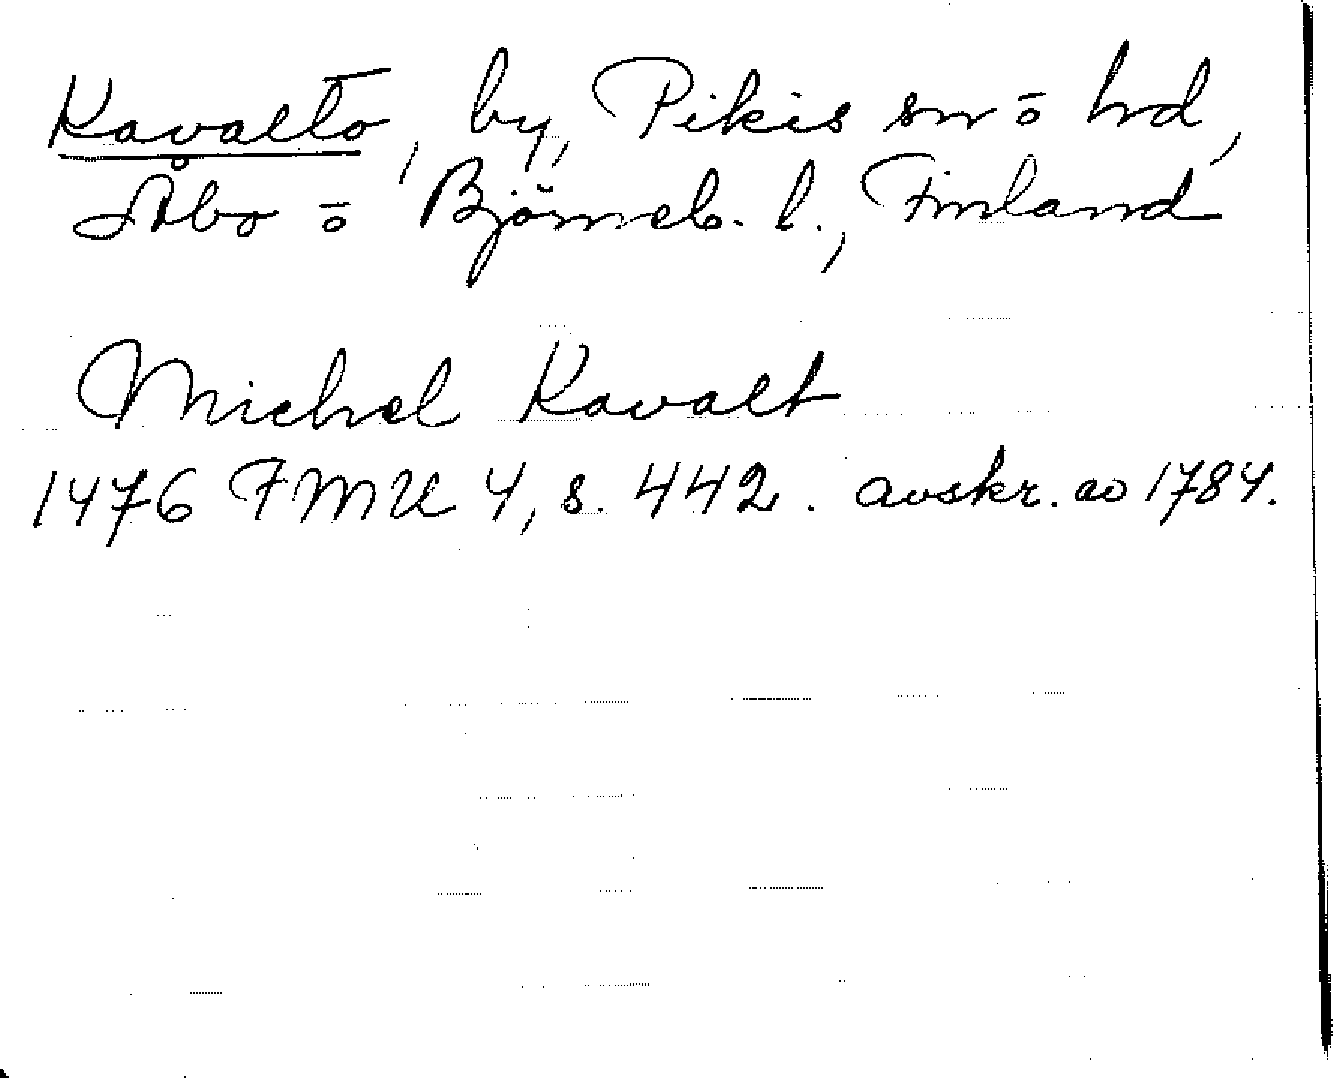 Kavalto, by, Pikis sn ō hd,
Åbo ō Björneb. l., Finland
Michel Kavalt
1476 FMU 4, s. 442. avskr. ao 1784.